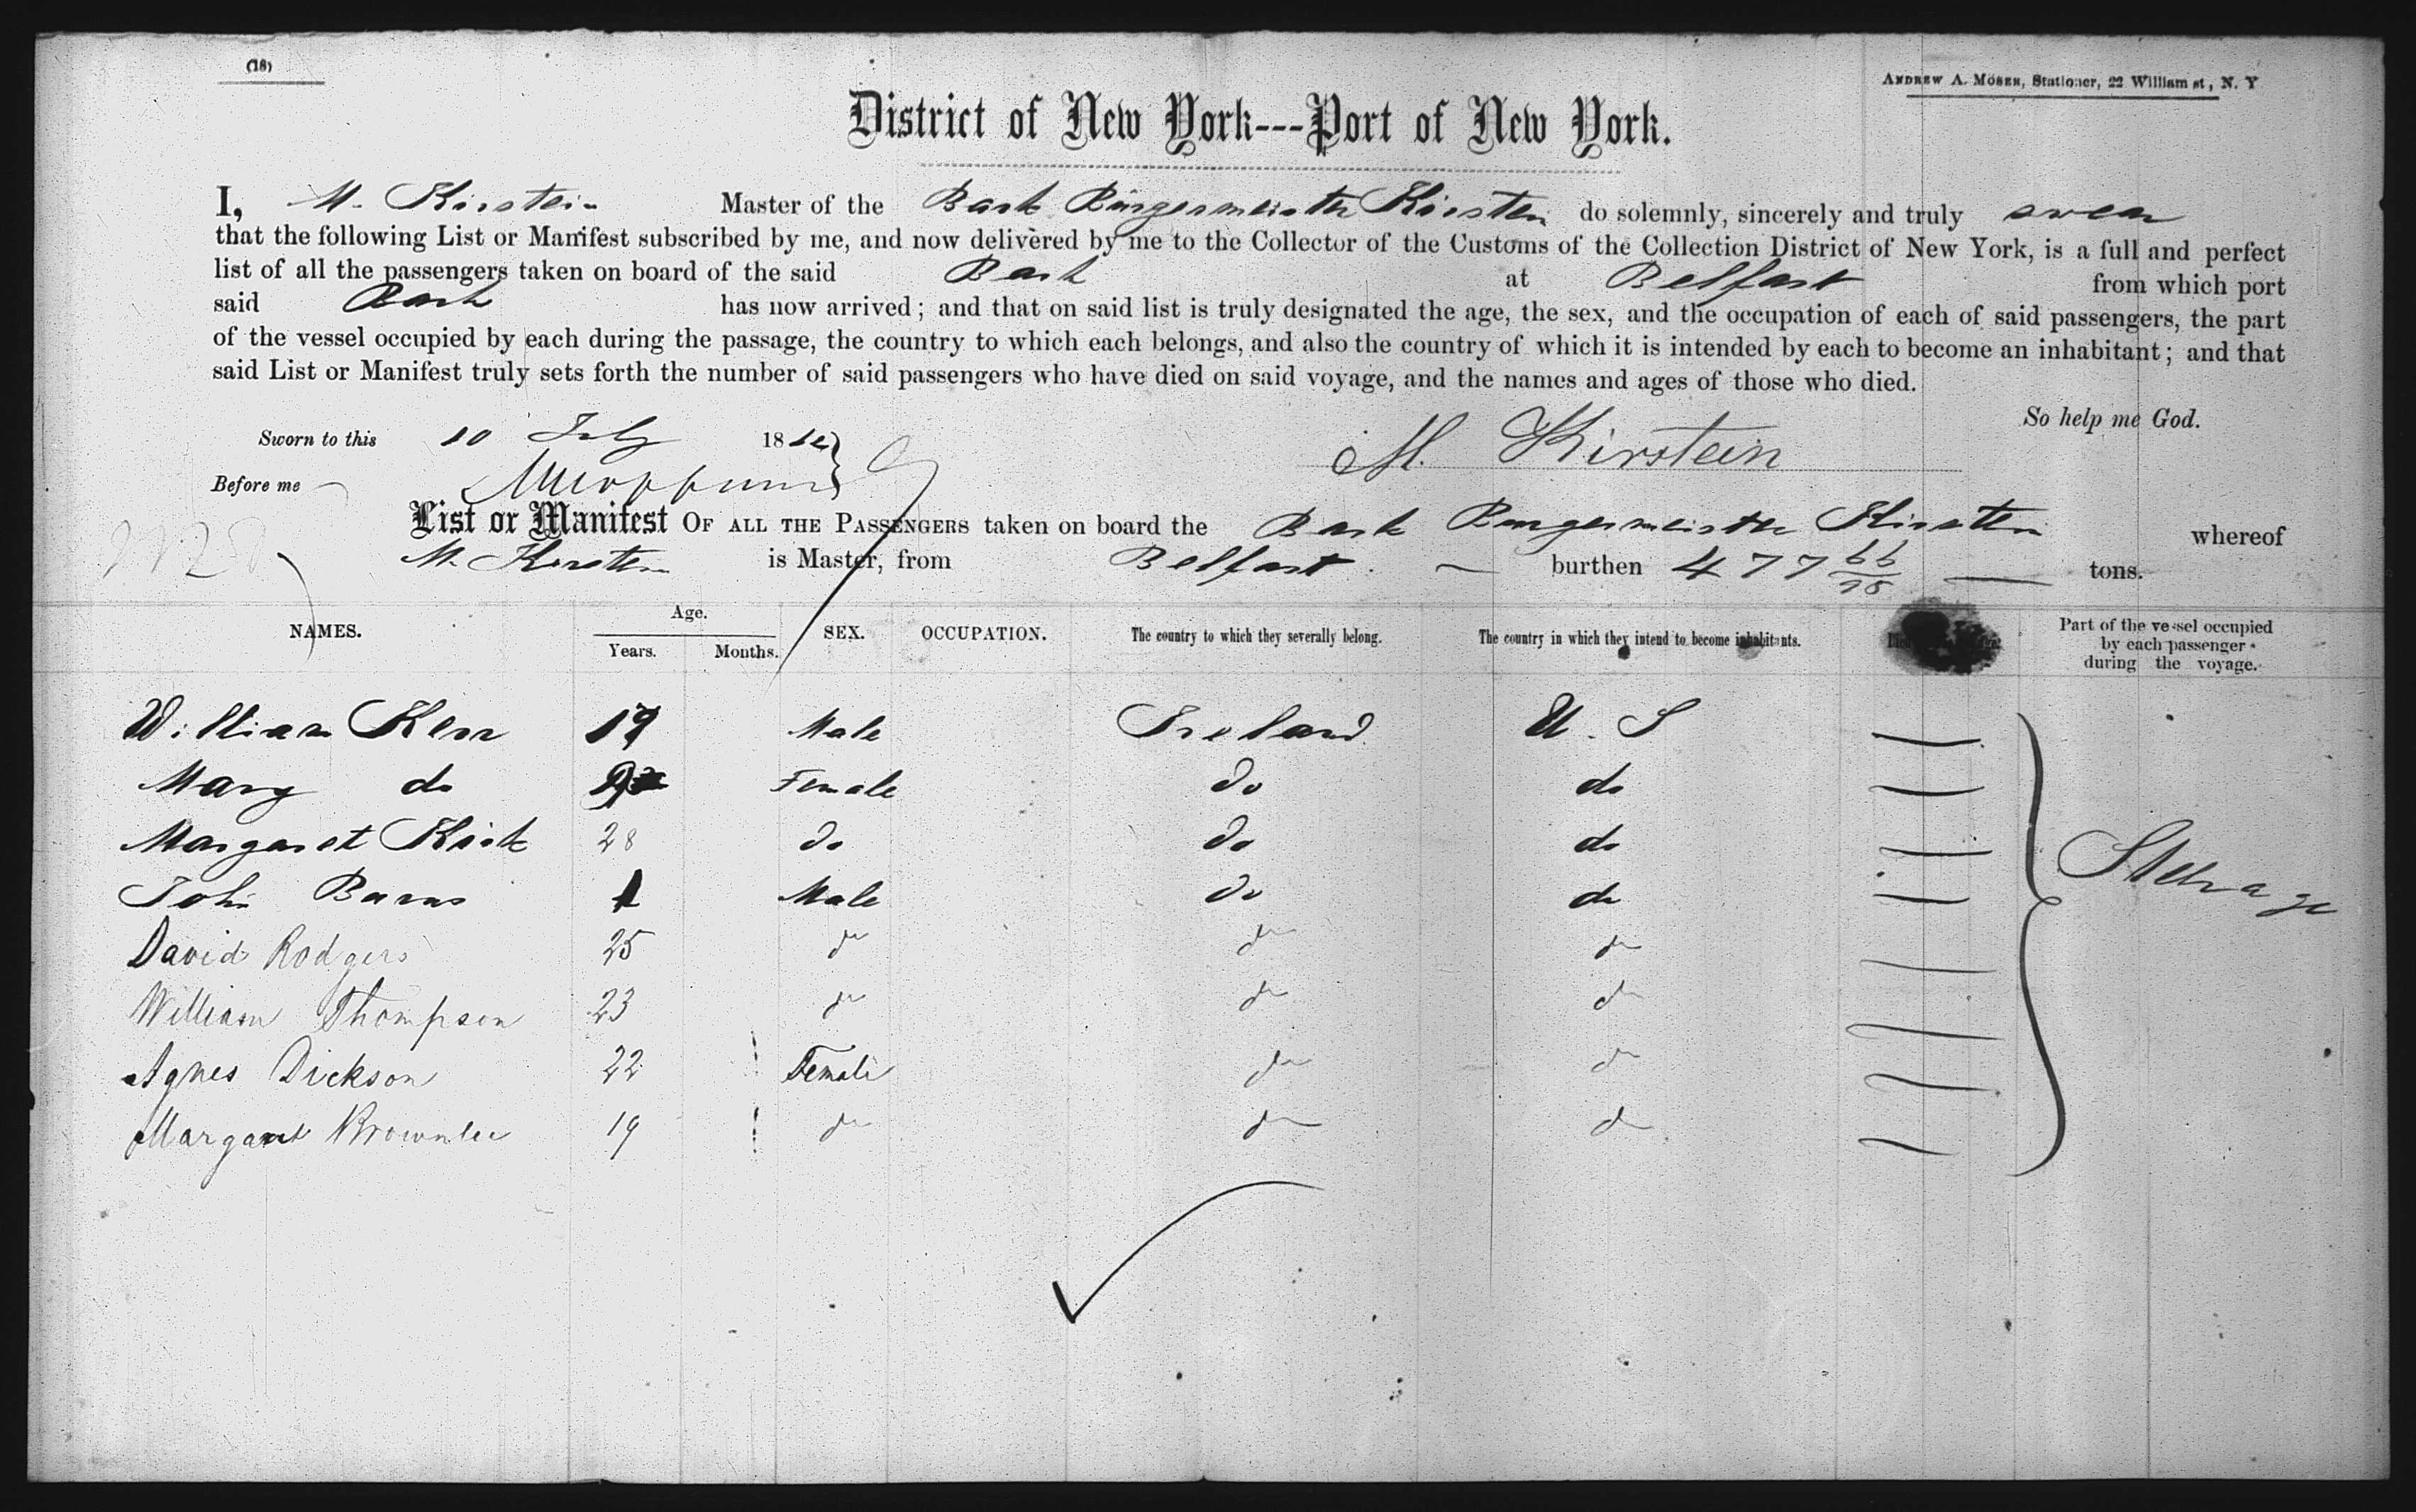 (18)
ANDREW A. MOSER, Stationer, 22 William st, N. Y
District of New York---Port of New York.
I, M. Kirstein Master of the Bark Burgermeister Kirsten do solemnly, sincerely and truly swear
that the following List or Manifest subscribed by me, and now delivered by me to the Collector of the Customs of the Collection District of New York, is a full and perfect
list of all the passengers taken on board of the said Bark at Belfast from which port
said Bark has now arrived; and that on said list is truly designated the age, the sex, and the occupation of each of said passengers, the part
of the vessel occupied by each during the passage, the country to which each belongs, and also the country of which it is intended by each to become an inhabitant; and that
said List or Manifest truly sets forth the number of said passengers who have died on said voyage, and the names and ages of those who died.
So help me God.
Sworn to this 10 July 18
M. Kirstein
Before me
List or Manifest OF ALL THE PASSENGERS taken on board the Bark Burgermeister Kirsten whereof
M. Kirsten is Master, from Belfast burthen 477 66/95 tons.
NAMES. Age. Years. Months. SEX. OCCUPATION. The country to which they severally belong. The country in which they intend to become inhabitants. Part of the vessel occupied by each passenger during the voyage.
William Kerr 19 Male Ireland U. S
Mary do Female do do
Margaret Kirk 28 do do do
John Burns 1 Male do do
Steerage
David Rodgers 25 do do do
William Thompson 23 do do do
Agnes Dickson 22 Female do do
Margaret Brownlee 19 do do do